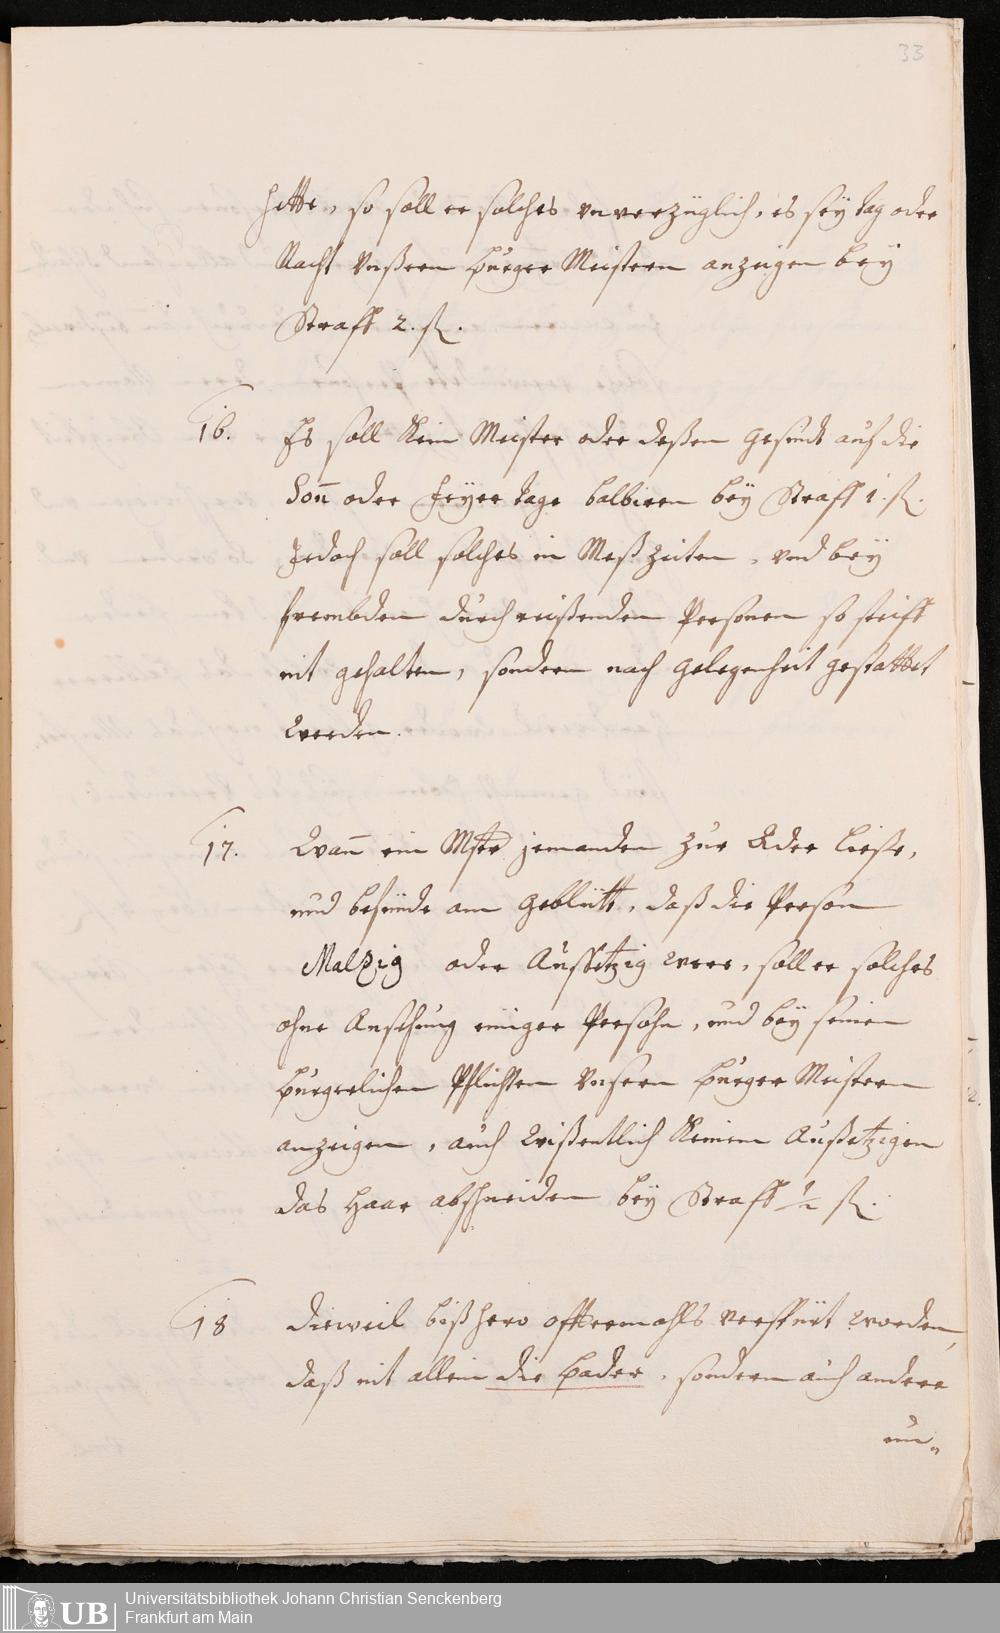 33
hette, so soll er solches vnverzüglich, es seÿ tag oder
Nacht Vnßern Burger Meistern anzeigen beÿ
Straff 2. fl.
16. Es soll Kein Meister oder deßen gesindt auf die
Soñ oder Feÿer tage balbiren beÿ Straff 1. fl.
Jedoch soll solches in Meß zeiten, vnd beÿ
frembden durch reißenden Personen so steiff
nit gehalten, sondern nach gelegenheit gestattet
werden.
17. Wañ ein Mstr jemanden zur Ader ließe,
und befünde am geblütt, daß die Person
Malzig oder Aussetzig were, soll er solches
ohne Ansehung einiger Persohn, und beÿ seinen
burgerlichen Pflichten Vnsern Burger Meistern
anzeigen, auch Wißentlich Keinem Außetzigen
das Haar abschneiden beÿ Straff ½ fl.
18 Dieweil bißhero offtermahls verspürt worden,
daß nit allein die Bader, sondern auch andere
un„
UB Universitätsbibliothek Johann Christian Senckenberg
Frankfurt am Main